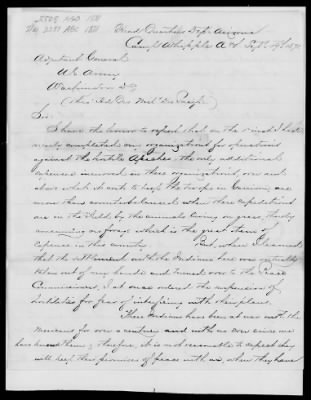 Head Quarters Dept. Arizona
Camp Apache A.T. Sept. 19th 1871
Adjutant General
U.S. Army
Washington D.C.
Sir:
I have the honor to report that on the
completed my organizations for operations
against the hostile Apaches. The only additional
expenses incurred in these organizations, over and
above what it costs to keep the troops in Garrison, are
more than counterbalanced when these expeditions
are in the field, by the animals living on grass, thereby
economising on forage which is the great item of
expense in this country. But, when I learned
that the settlement with the Indians here was
taken out of my hands and turned over to the Peace
Commissioners, I at once ordered the suspension of
hostilities for fear of interfering with their plans.
These Indians have been at war with the
Mexicans for over a century and with us ever since we
have known them; therefore, it is not reasonable to expect they
will keep their promises of peace with us, when they have